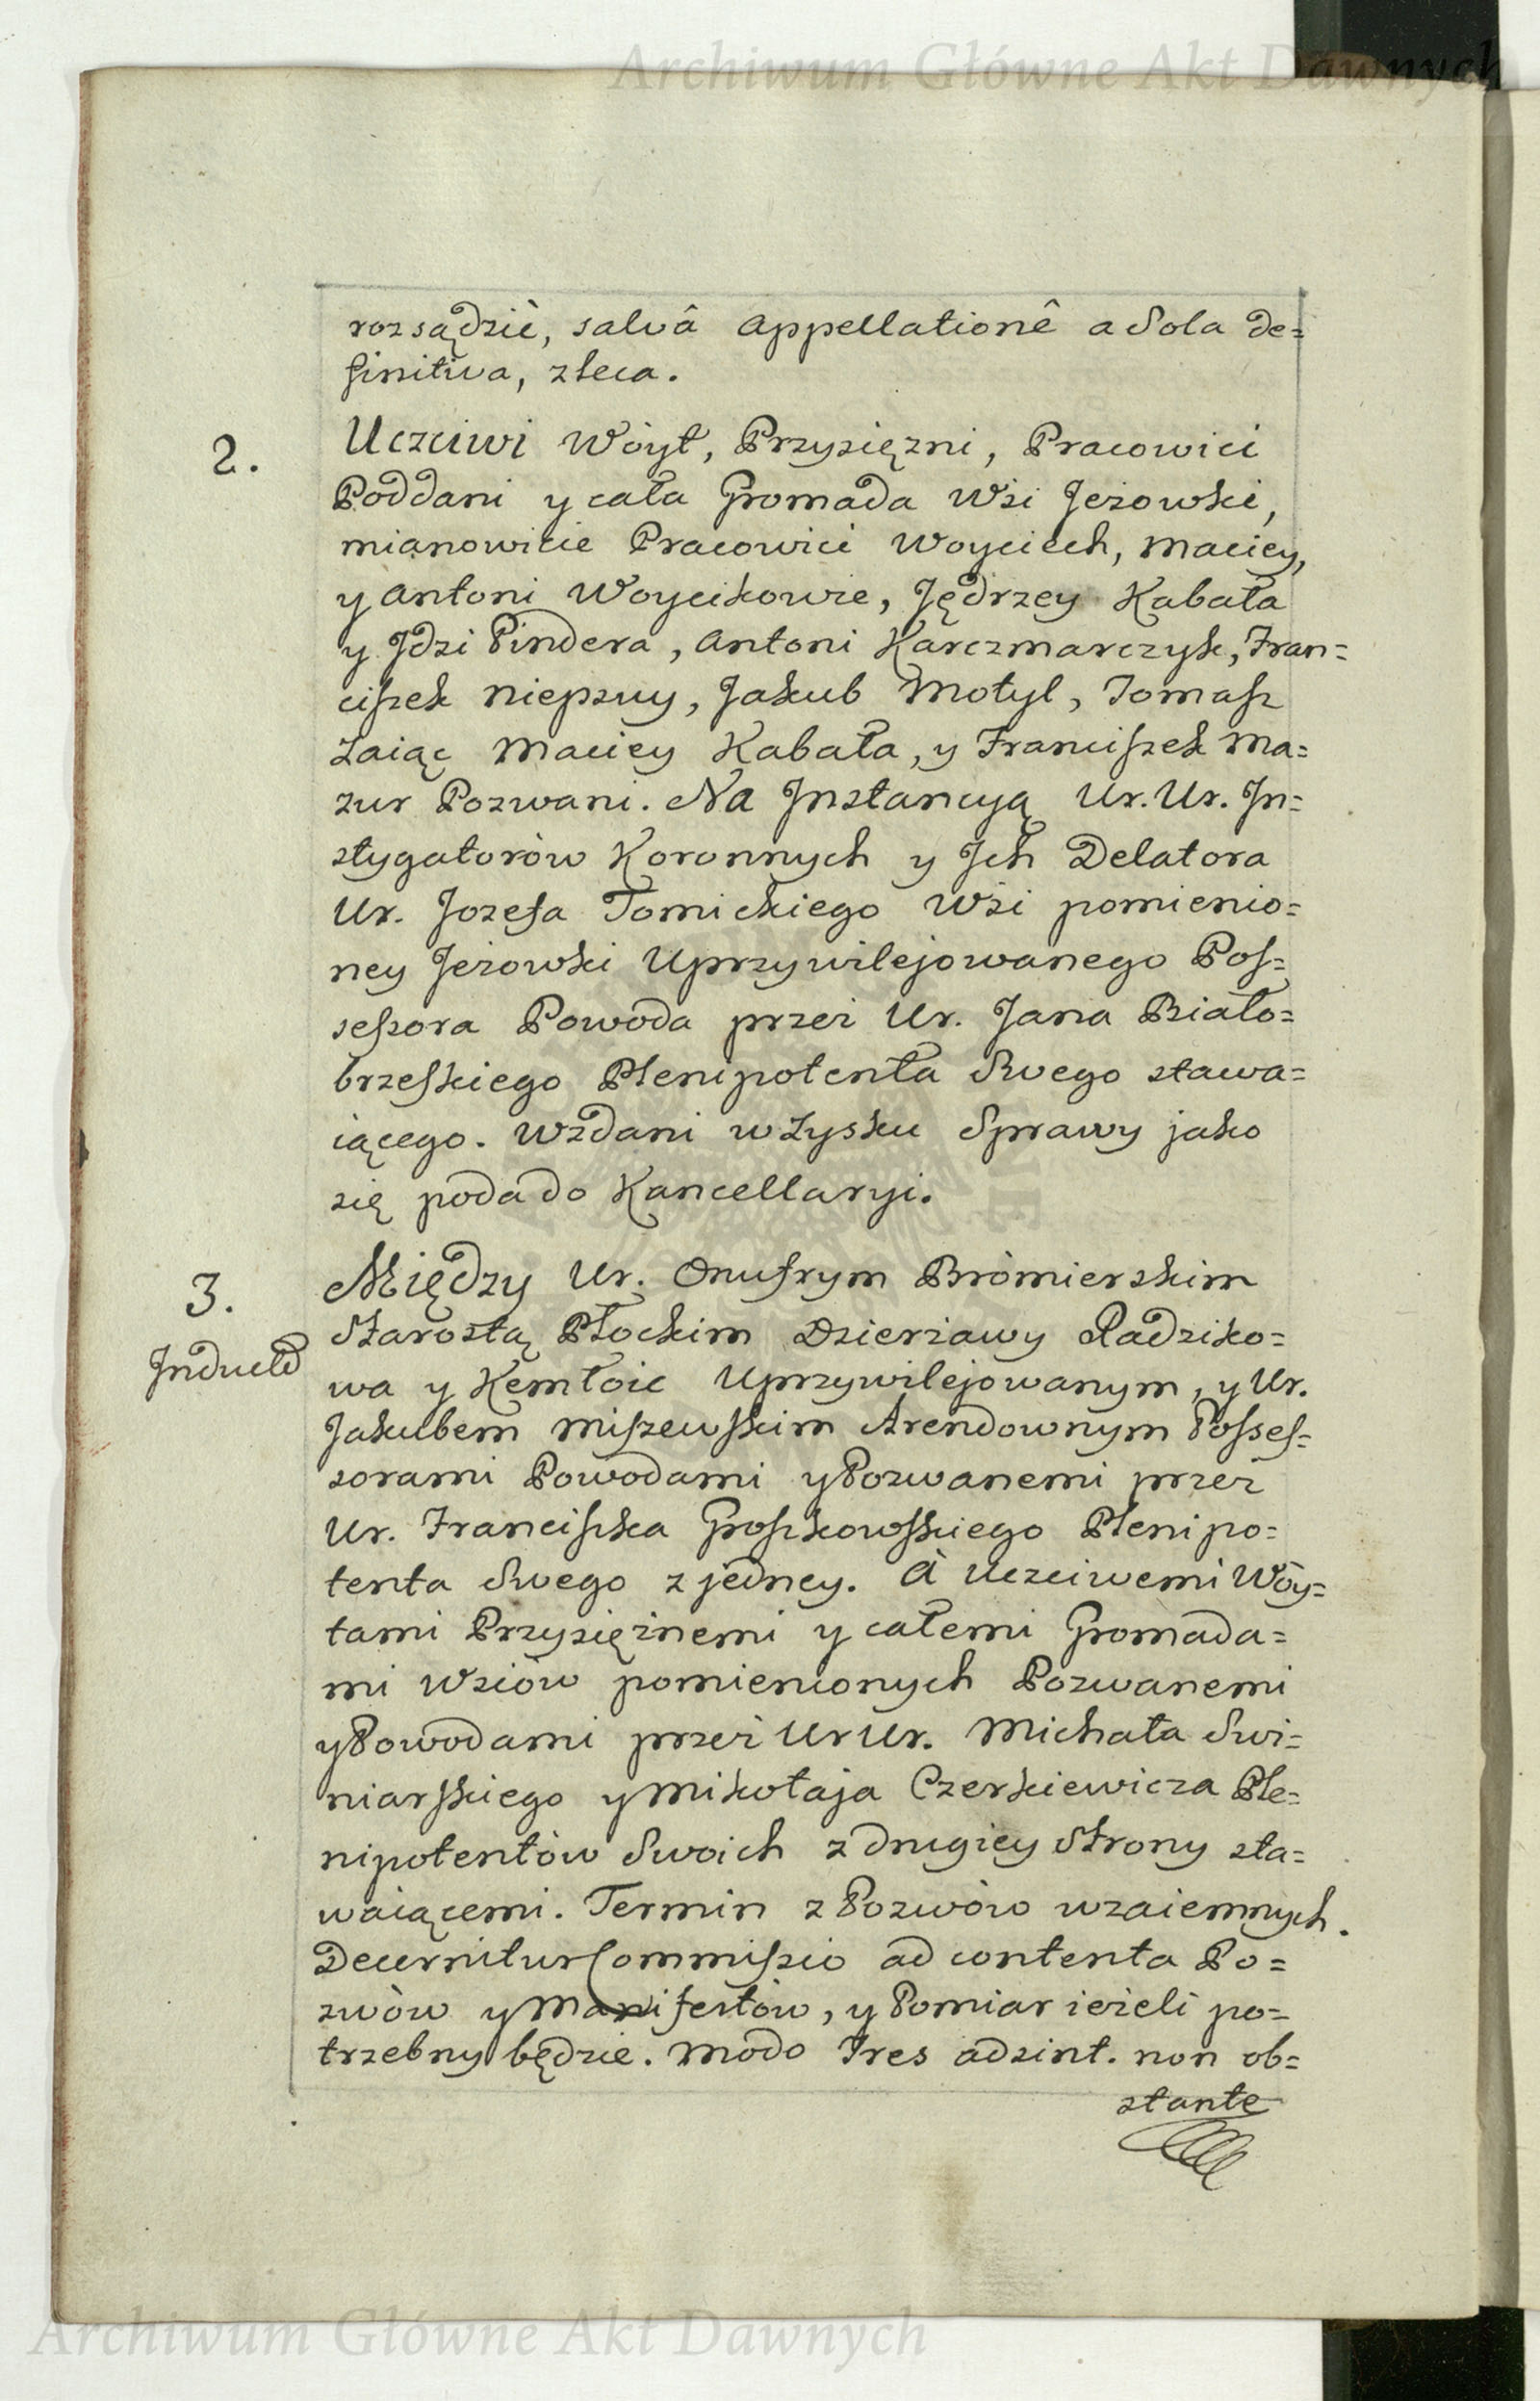 Archiwum Główne Akt Dawnych
rozsądzić, salvâ appellationê a Sola de=
finitiva, zleca.
2.
Uczciwi Wóyt, Przysięzni, Pracowici
Poddani y cała Gromada Wsi Jeżowski,
mianowicie Pracowici Woyciech, Maciey,
y Antoni Woycikowie, Jędrzey Kabała
y Jdzi Pindera, Antoni Karczmarczyk, Fran=
ciszek Niepsuy, Jakub Motyl, Tomasz
Zaiąc Maciey Kabała, y Franciszek Ma=
zur Pozwani. Na Jnstancyą Ur. Ur. Jn=
stygatorów Koronnych y Jch Delatora
Ur. Jozefa Tomickiego Wsi pomienio=
ney Jeżowski Uprzywilejowanego Pos=
sessora Powoda przez Ur. Jana Biało=
brzeskiego Plenipotenta Swego stawa=
iącego. Wzdani w Zysku Sprawy jako
się poda do Kancellaryi.
3.
Jnductd
Między Ur. Onufrym Bromierskim
Starostą Płockim Dzierżawy Radziko=
wa y Kemłoic Uprzywilejowanym, y Ur.
Jakubem Miszewskim Arendownym Posses=
sorami Powodami y Pozwanemi przez
Ur. Franciszka Groszkowskiego Plenipo=
tenta Swego z jedney. A Uczciwemi Wóy=
tami Przysiężnemi y całemi Gromada=
mi Wsiów pomienionych Pozwanemi
y Powodami przez Ur Ur. Michała Swi=
niarskiego y Mikołaja Czerkiewicza Ple=
nipotentów Swoich z drugiey Strony sta=
waiącemi. Termin z Pozwów wzaiemnych.
Decernitur Commissio ad contenta Po=
zwów y Manifestów, y Pomiar ieżeli po=
trzebny będzie. Modo Tres adsint. non ob=
stante
Archiwum Główne Akt Dawnych